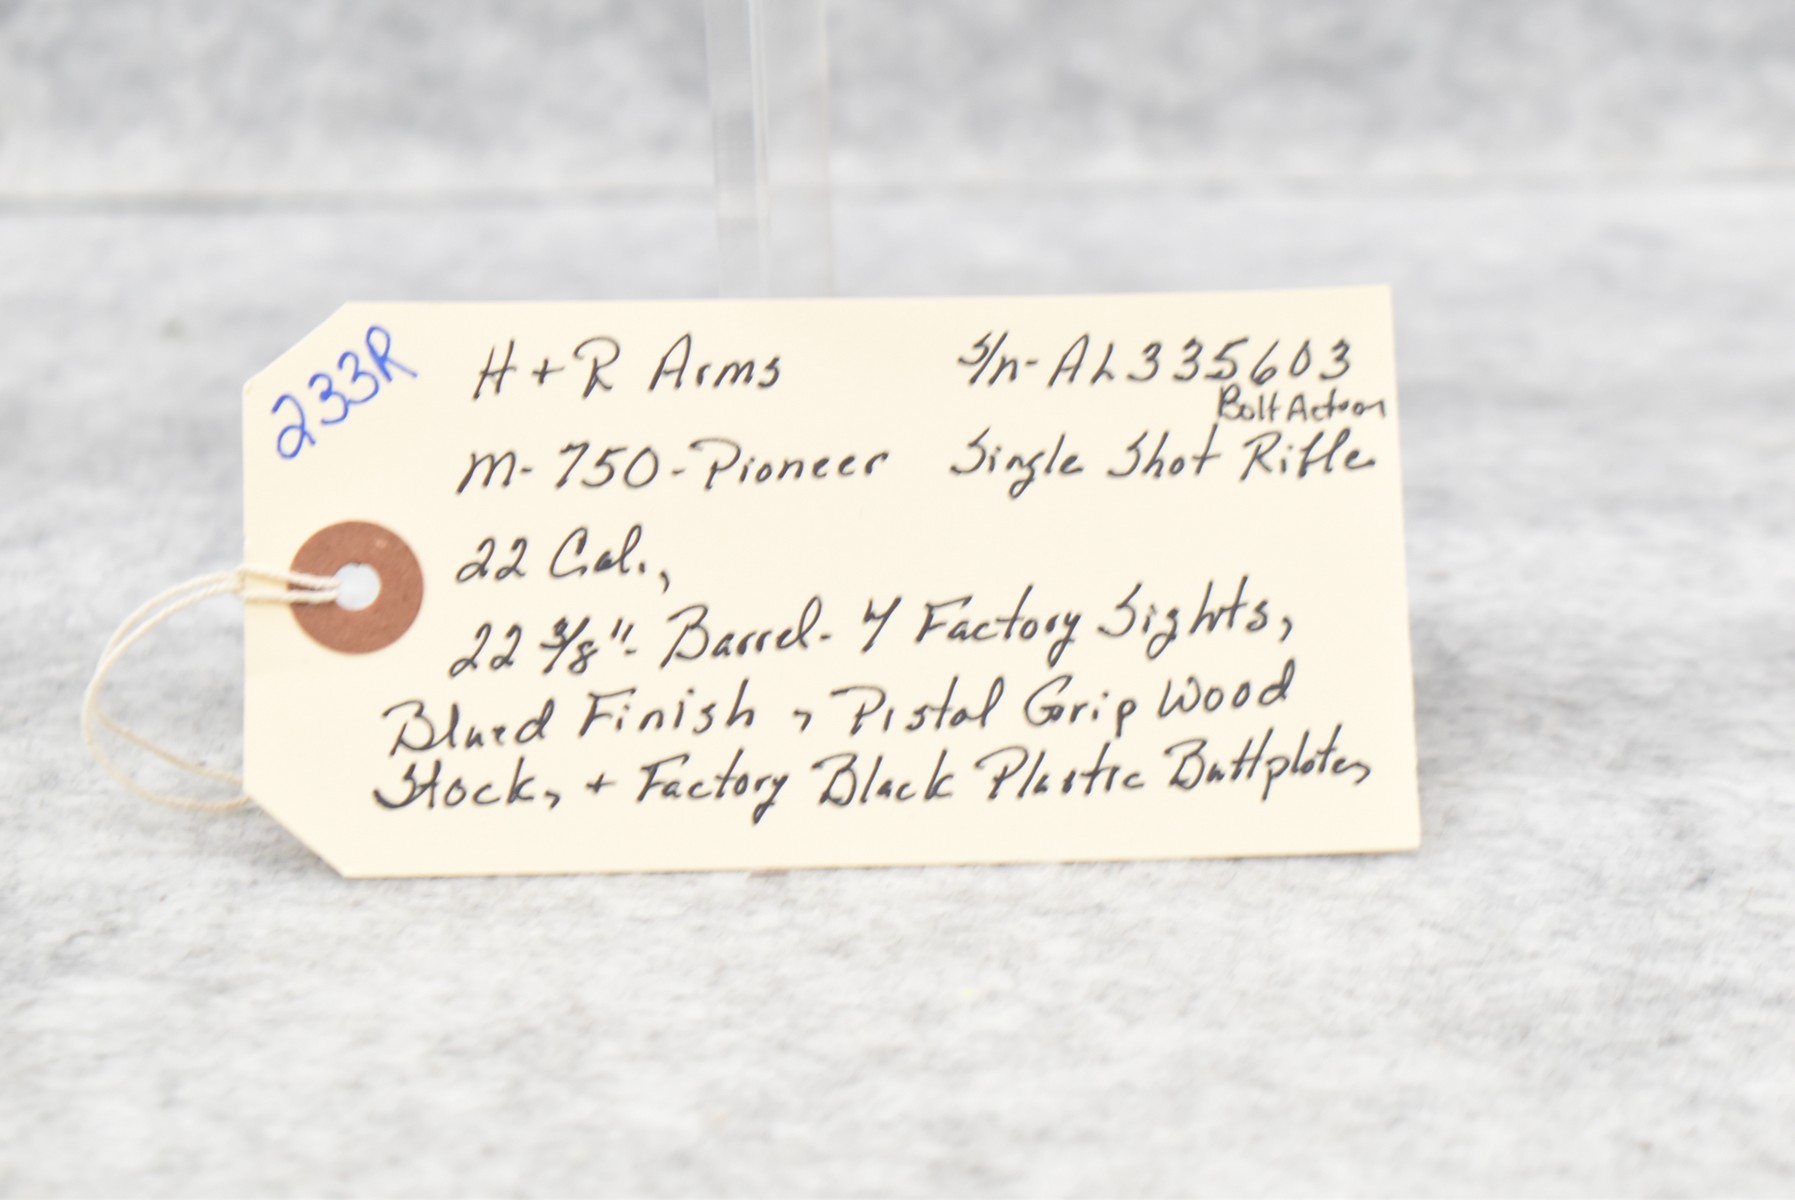 233R
H + R Arms S/n- AL335603
Bolt Action
M- 750 - Pioneer Single Shot Rifle
22 Cal.,
22 3/8"- Barrel- Factory Sights,
Blued Finish, Pistol Grip Wood
Stock, + Factory Black Plastic Buttplate,